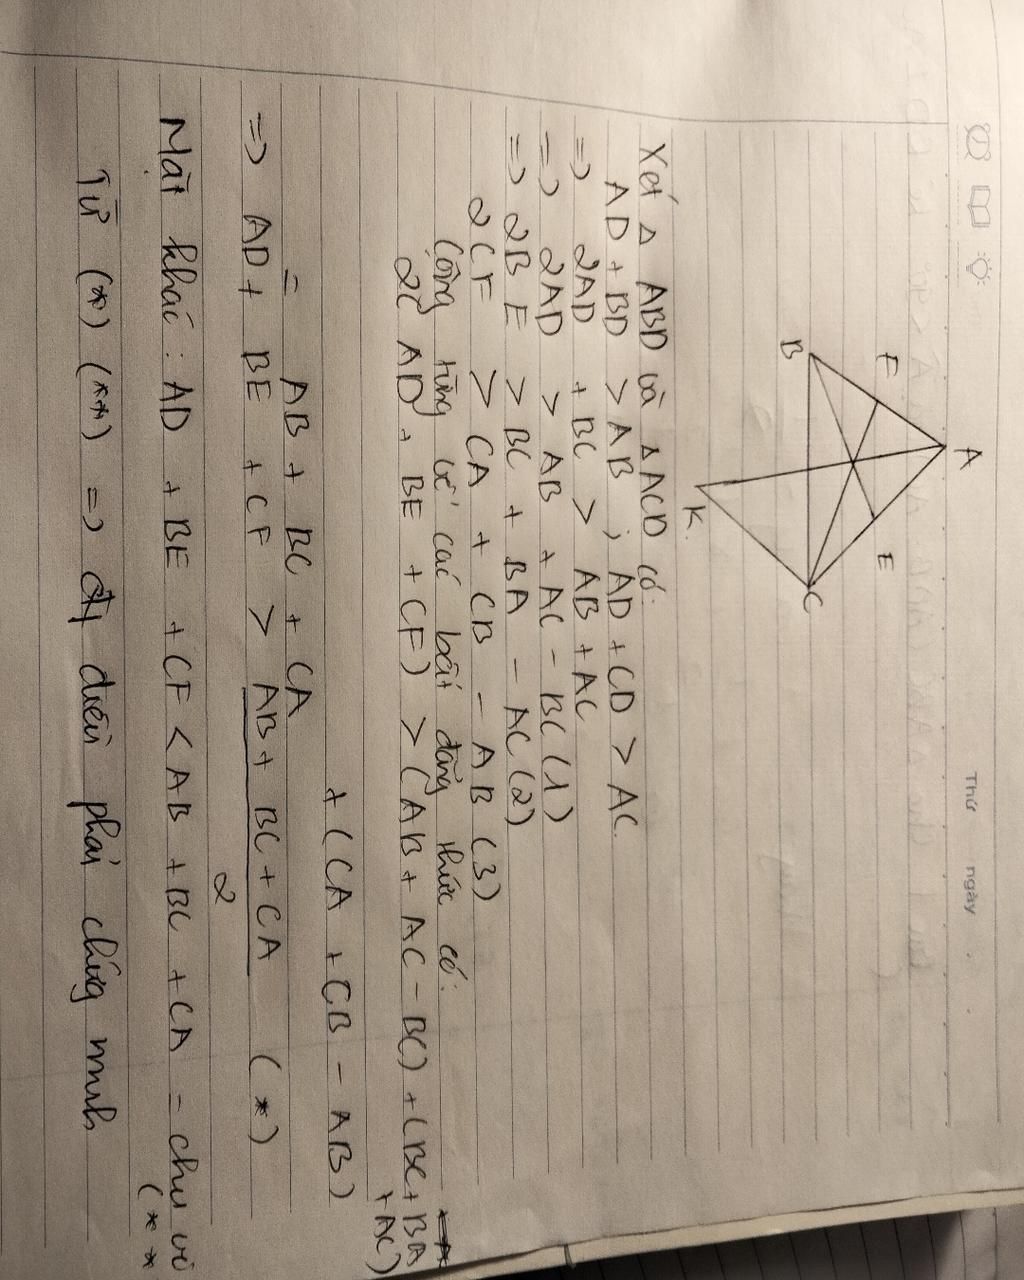 Thứ
ngày
A
F
E
B
C
K
Xét Δ ABD và Δ ACD có
AD + BD > AB ; AD + CD > AC
=> 2AD + BC > AB + AC
=> 2AD > AB + AC - BC (1)
=> 2BE > BC + BA - AC (2)
2CF > CA + CB - AB (3)
Cộng từng vế các bất đẳng thức có:
2( AD + BE + CF) > ( AB + AC - BC) + (BC + BA
+ AC)
+ (CA + CB - AB)
= AB + BC + CA
=> AD + BE + CF > AB + BC + CA (*)
2
Mặt khác : AD + BE + CF < AB + BC + CA = chu vi
(**
Từ (*) (**) => đy điều phải chứng minh